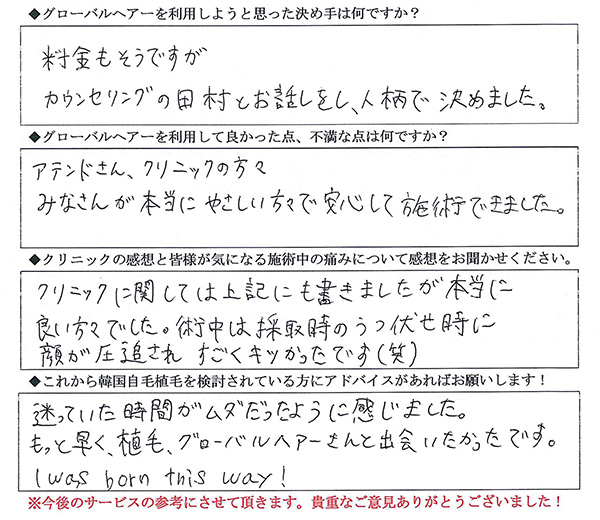 ◆グローバルヘアーを利用しようと思った決め手は何ですか？
料金もそうですが
カウンセリングの田村とお話しをし、人柄で決めました。
◆グローバルヘアーを利用して良かった点、不満な点は何ですか？
アテンドさん、クリニックの方々
みなさんが本当にやさしい方々で安心して施術できました。
◆クリニックの感想と皆様が気になる施術中の痛みについて感想をお聞かせください。
クリニックに関しては上記にも書きましたが本当に
良い方々でした。術中は採取時のうつ伏せ時に
顔が圧迫され すごくキツかったです(笑)
◆これから韓国自毛植毛を検討されている方にアドバイスがあればお願いします！
迷っていた時間がムダだったように感じました。
もっと早く、植毛、グローバルヘアーさんと出会いたかったです。
I was born this way!
※今後のサービスの参考にさせて頂きます。貴重なご意見ありがとうございました！